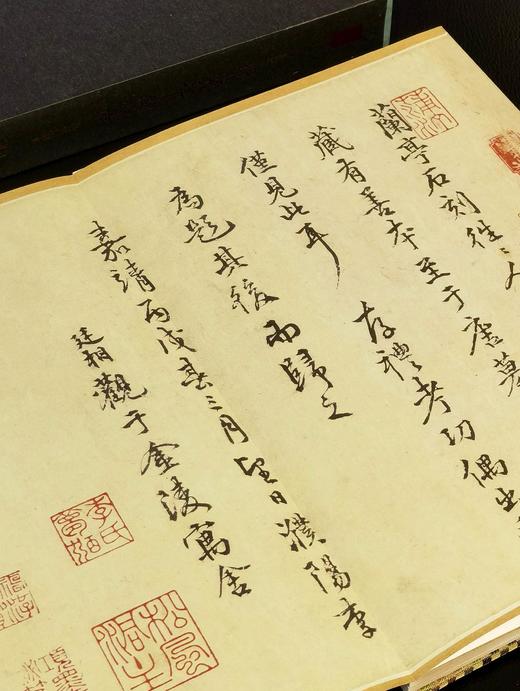 蘭亭石刻往々人
藏有善本至于唐摹
僅見此耳 存禮考功偶出
為題其後而歸之
嘉靖丙戌春三月望日濮陽李
廷相觀于金陵寓舍